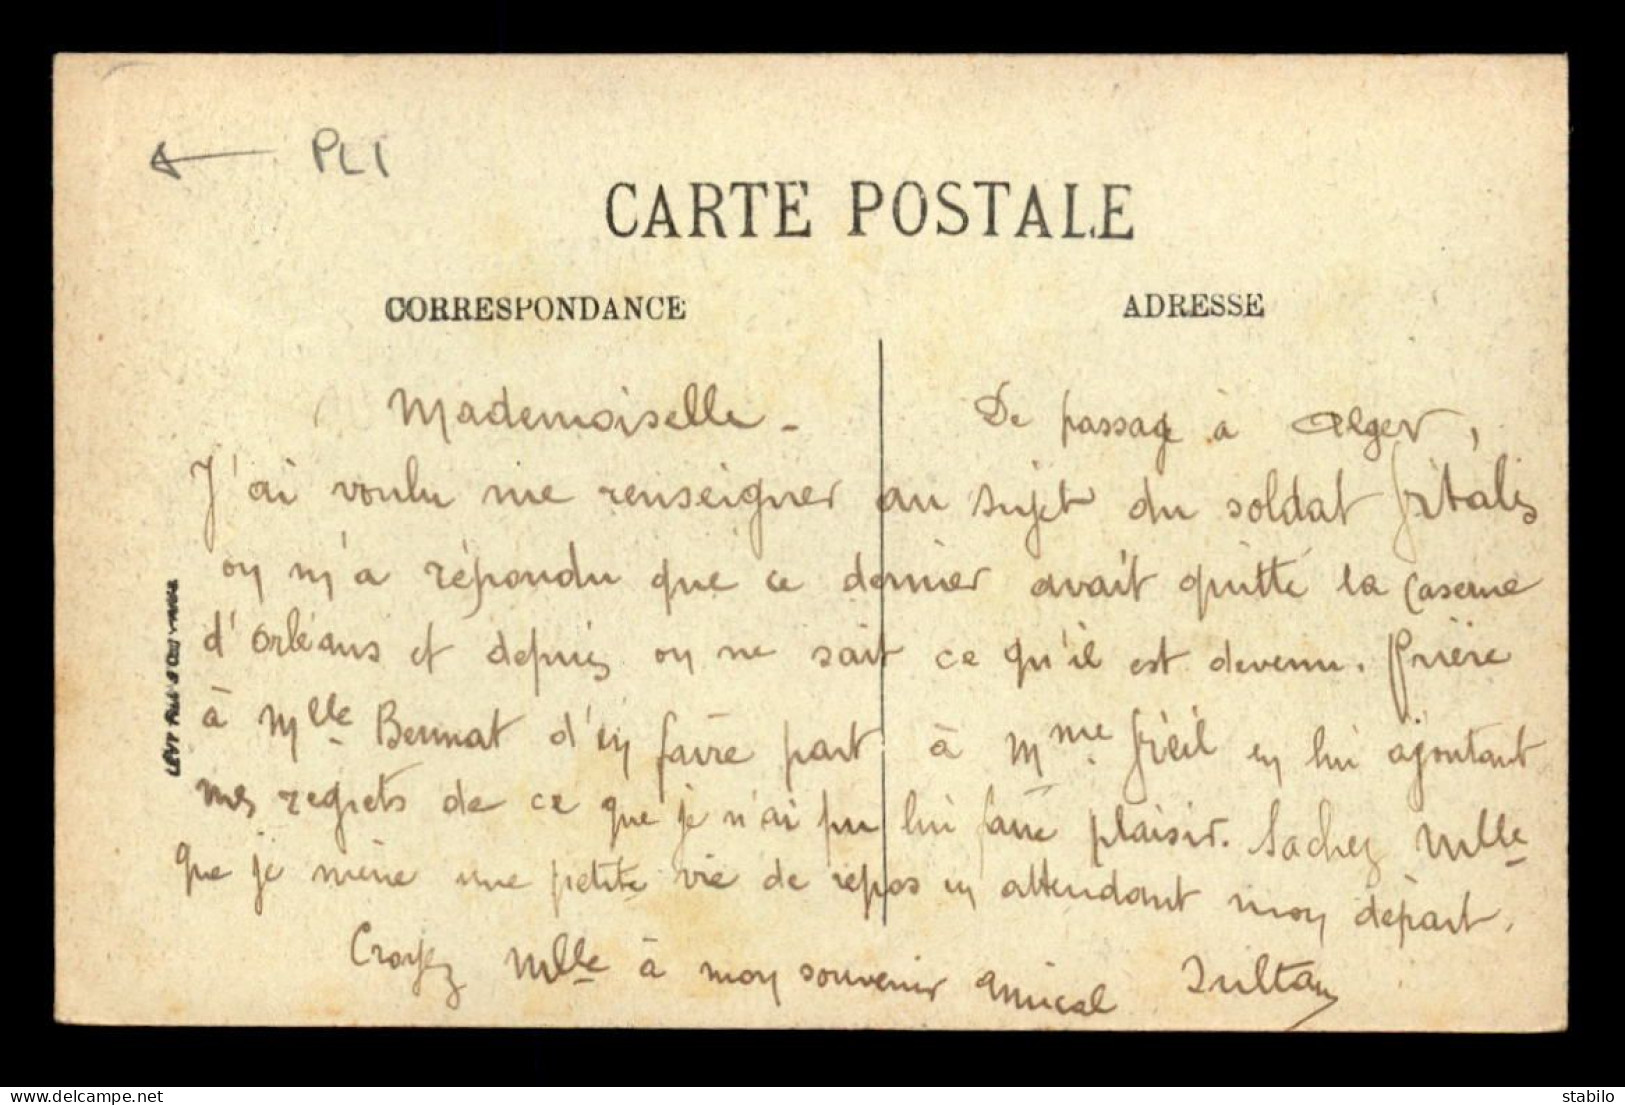 PLI
CARTE POSTALE
CORRESPONDANCE
ADRESSE
Mademoiselle -
De passage à Alger,
J'ai voulu me renseigner au sujet du soldat
on m'a répondu que ce dernier avait quitté la caserne
d'Orléans et depuis on ne sait ce qu'il est devenu. Prière
à Mlle Bernnat d'en faire part à Mme en lui ajoutant
mes regrets de ce que je n'ai pu lui faire plaisir. Sachez Mlle
que je mène une petite vie de repos en attendant mon départ.
Croyez Mlle à mon souvenir amical Sultan
LÉVY FILS
delcampe.net
stabilo